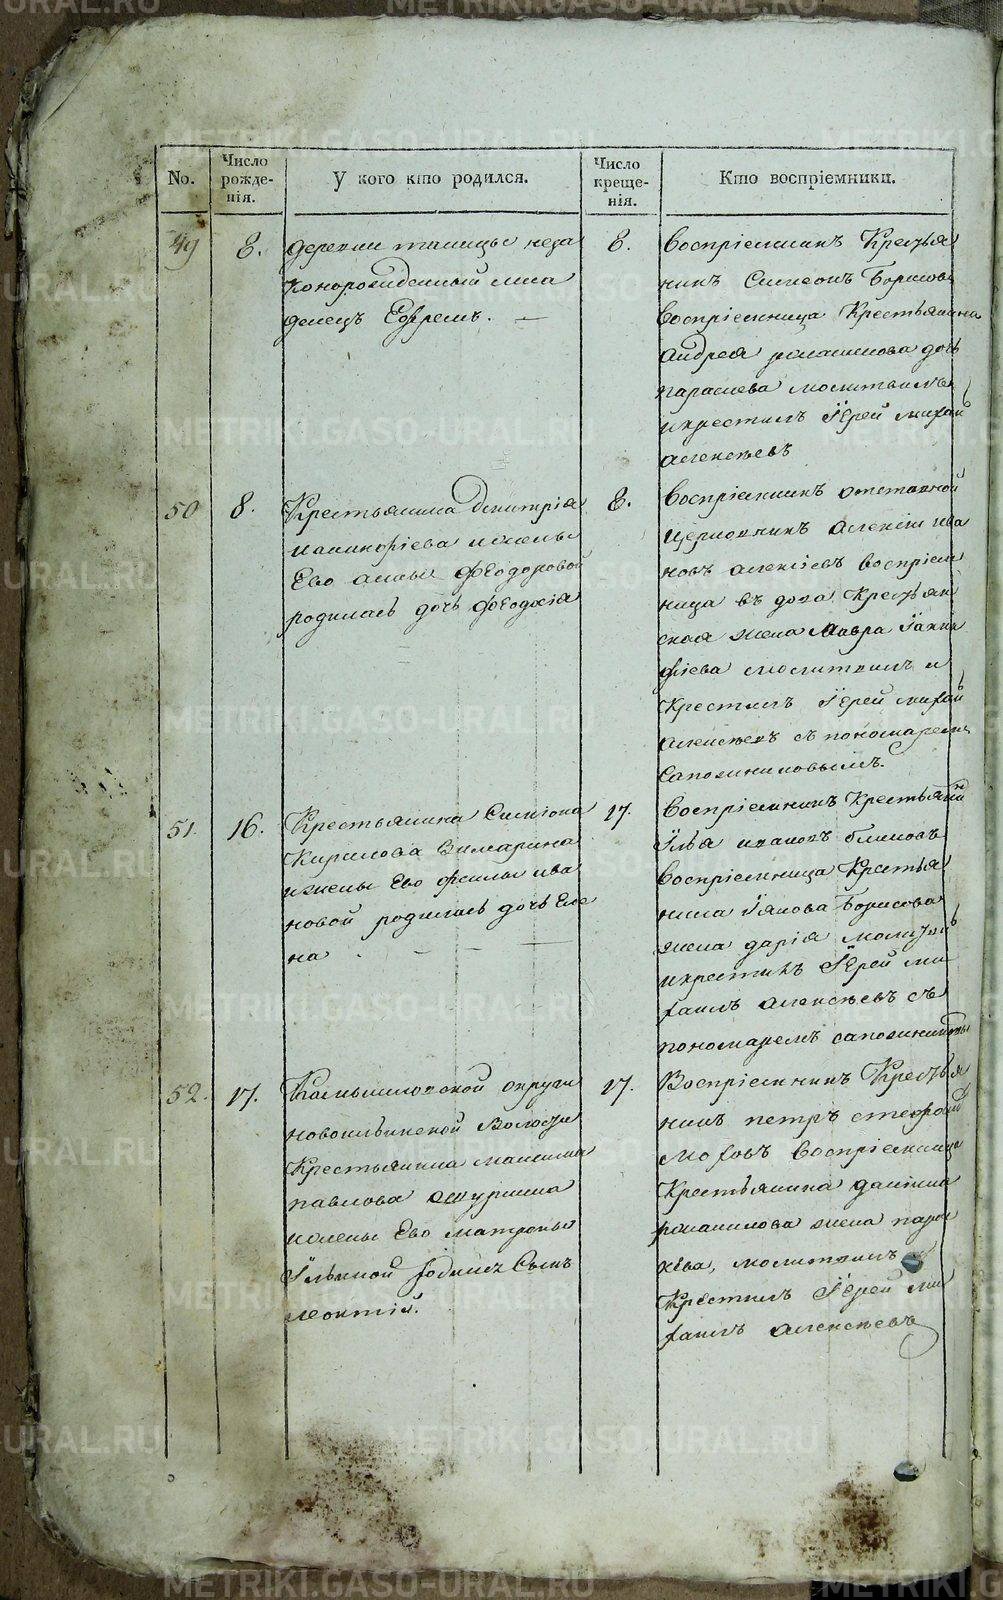 No.
Число рожде-нія.
У кого кто родился.
Число креще-нія.
Кто воспріемники.
49
8.
деревни талицы неза
конорожденный мла
денецъ Ефремъ. —
8.
воспріемникъ Крестья
нинъ Симеонъ Борисовъ
воспріемница Крестьянина
андрея дочь
параскева молитвилъ
и крестилъ Іерей михаилъ
алексѣевъ
50
8.
Крестьянина Дмитрія
иакинфіева и жены
Его анны феодоровой
родилась дочь феодосія
8.
воспріемникъ отставной
алексій ива
новъ алексіевъ воспріем
ница вдова Крестьян
ская жена Мавра Іакин
фіева молитвилъ и
Крестилъ Іерей михаилъ
алексѣевъ съ пономаремъ
Сапожниковымъ.
51.
16.
Крестьянина Симіона
Кирилова
и жены Его феклы ива
новой родилась дочь Еле
на
17.
воспріемникъ Крестьянинъ
Илья ивановъ блиновъ
воспріемница Крестья
нина Іакова Борисова
жена дарія молитвилъ
и крестилъ Іерей ми
хаилъ алексѣевъ съ
пономаремъ сапожниковымъ
52.
17.
Камышловской округи
новопышминской Волости
Крестьянина максима
павлова
и жены Его матроны
Ильиной родился Сынъ
леонтій.
17.
Воспріемникъ Крестья
нинъ петръ стефановъ
моховъ воспріемница
Крестьянина данила
романилова жена парас
кева, молитвилъ и
Крестилъ Іерей ми
хаилъ алексѣевъ
METRIKI.GASO-URAL.RU